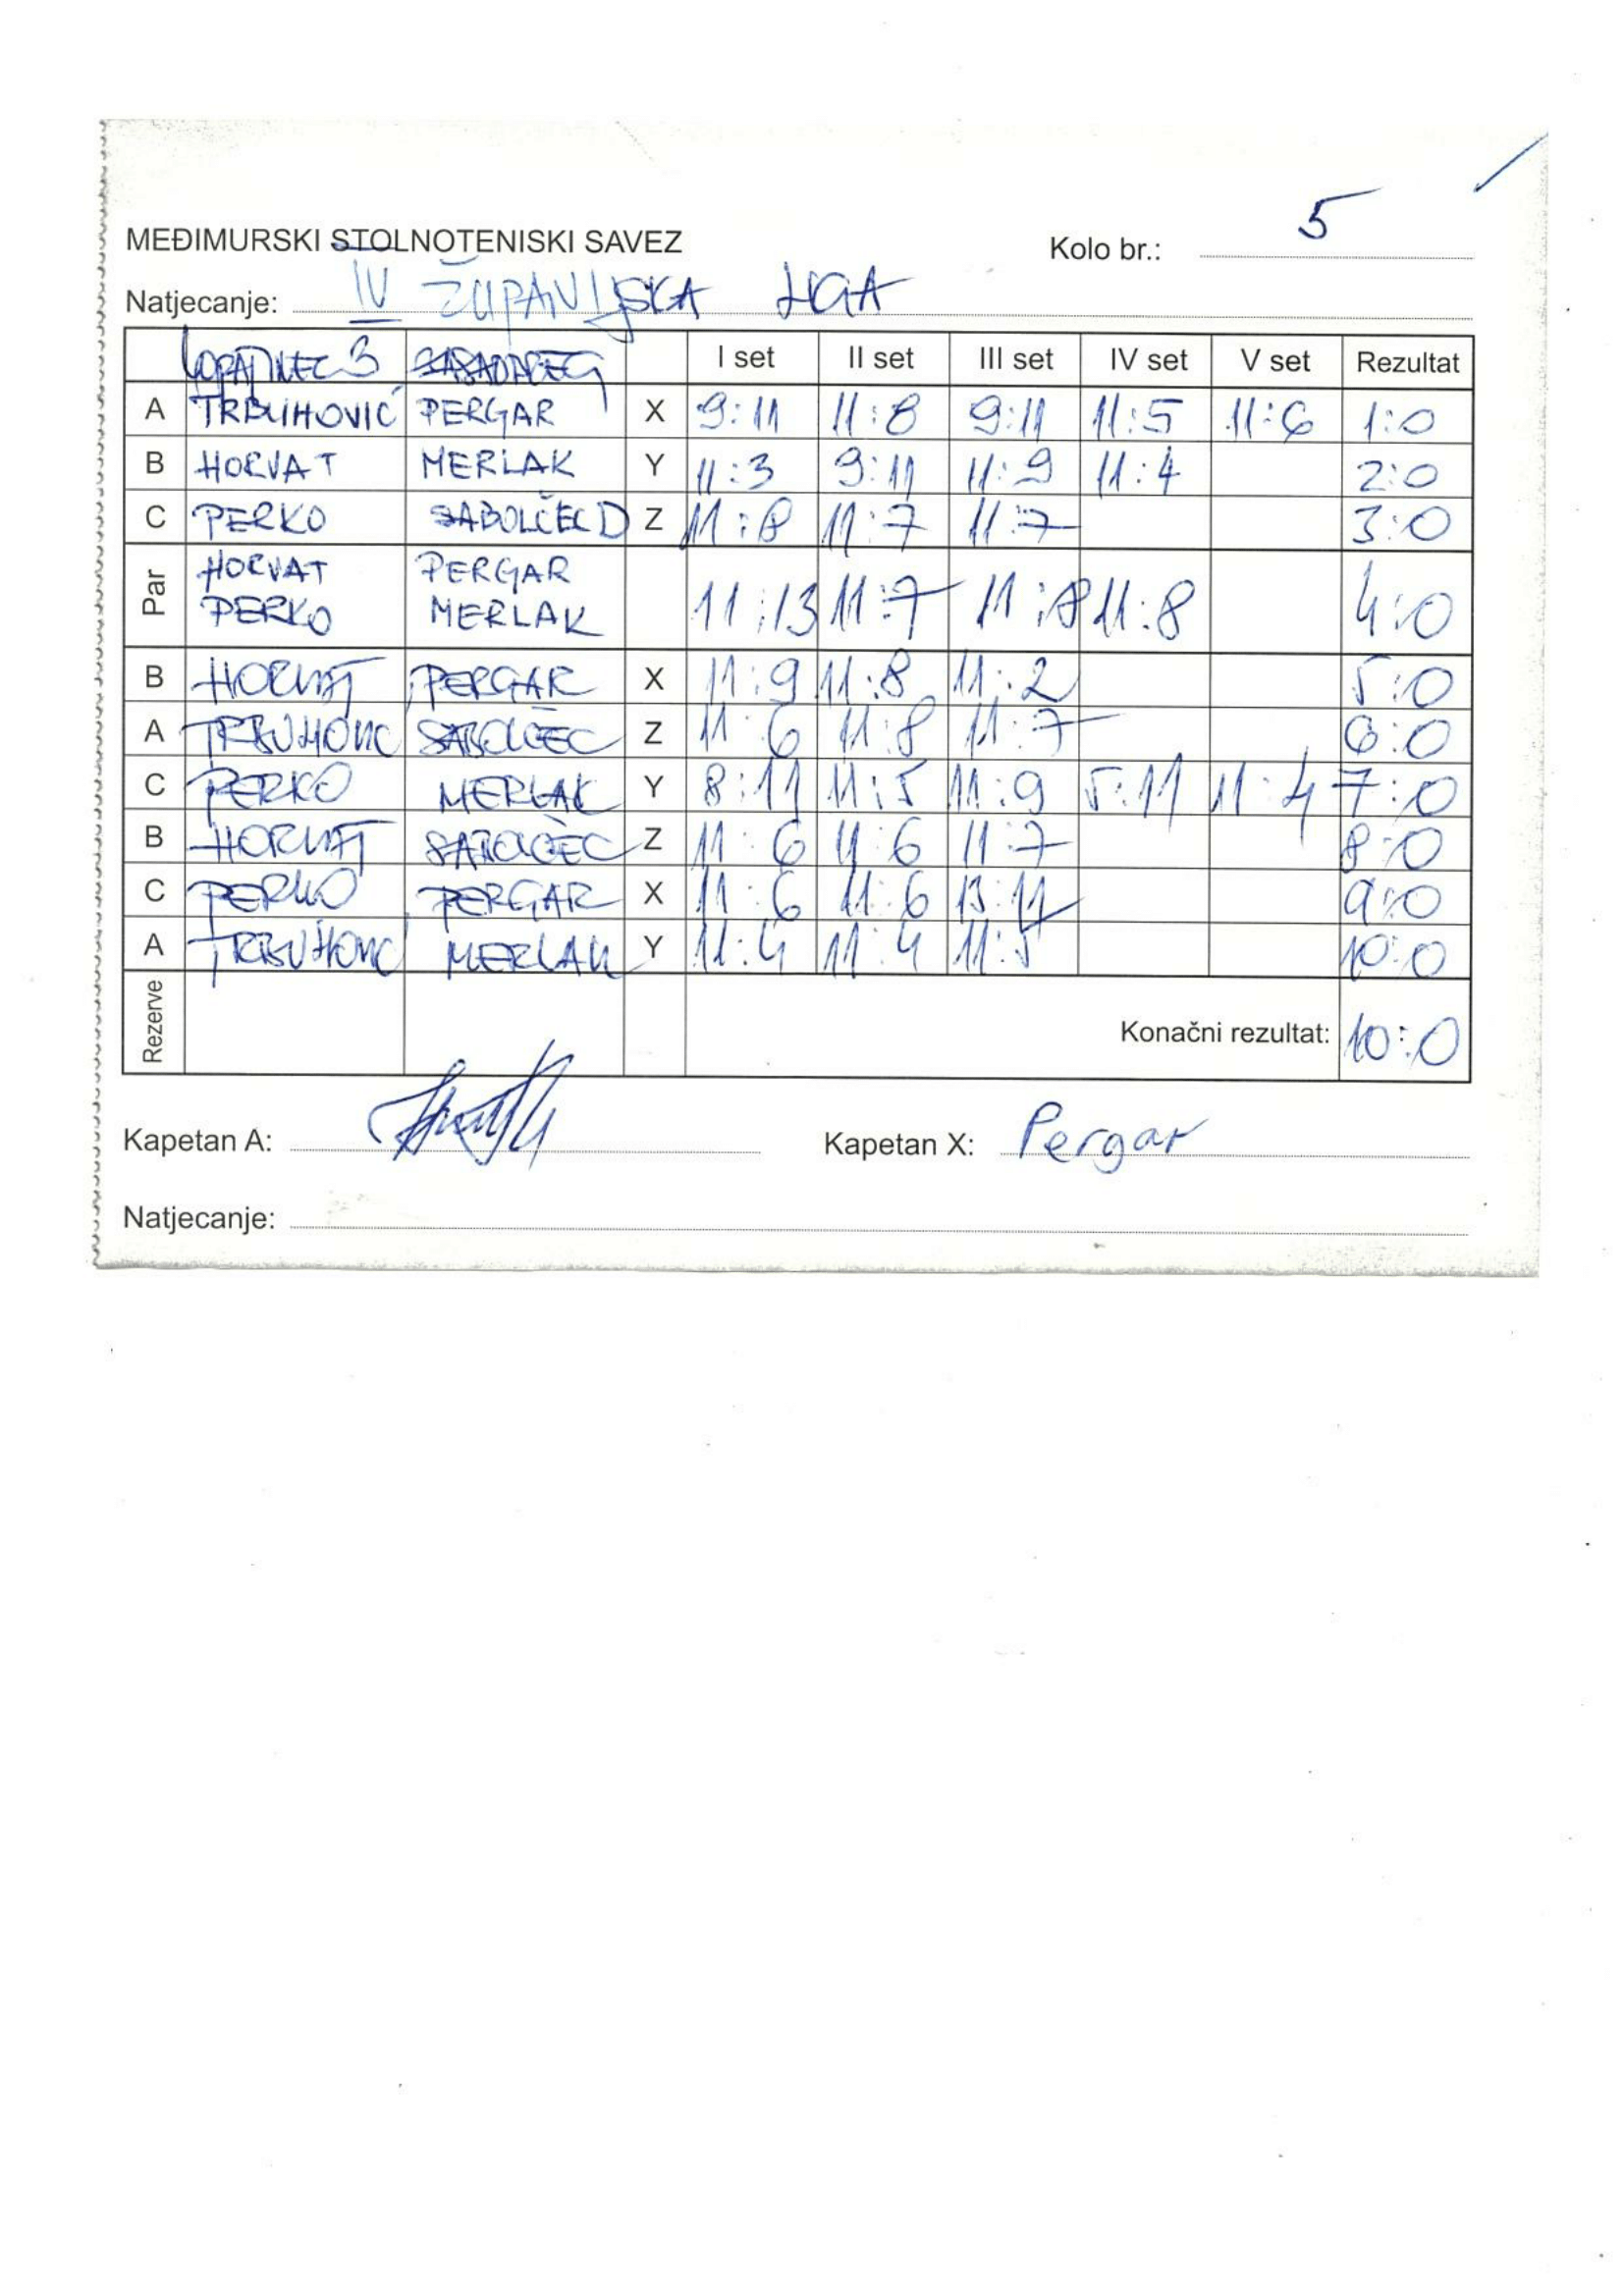 5
MEĐIMURSKI STOLNOTENISKI SAVEZ Kolo br.:
Natjecanje: IV ŽUPANIJSKA LIGA
LOPATINEC 3 I set II set III set IV set V set Rezultat
A TRBUHOVIĆ PERGAR X 9:11 11:8 9:11 11:5 11:6 1:0
B HORVAT MERLAK Y 11:3 9:11 11:9 11:4 2:0
C PERKO SABOLČEC D Z 11:8 11:7 11:7 3:0
Par HORVAT PERGAR
PERKO MERLAK 11:13 11:7 11:8 11:8 4:0
B HORVAT PERGAR X 11:9 11:8 11:2 5:0
A TRBUHOVIĆ SABOLČEC Z 11:6 11:8 11:7 6:0
C PERKO MERLAK Y 8:11 11:5 11:9 5:11 11:4 7:0
B HORVAT SABOLČEC Z 11:6 11:6 11:7 8:0
C PERKO PERGAR X 11:6 11:6 13:11 9:0
A TRBUHOVIĆ MERLAK Y 11:4 11:4 11:5 10:0
Rezerve Konačni rezultat: 10:0
Kapetan A: Kapetan X: Pergar
Natjecanje: